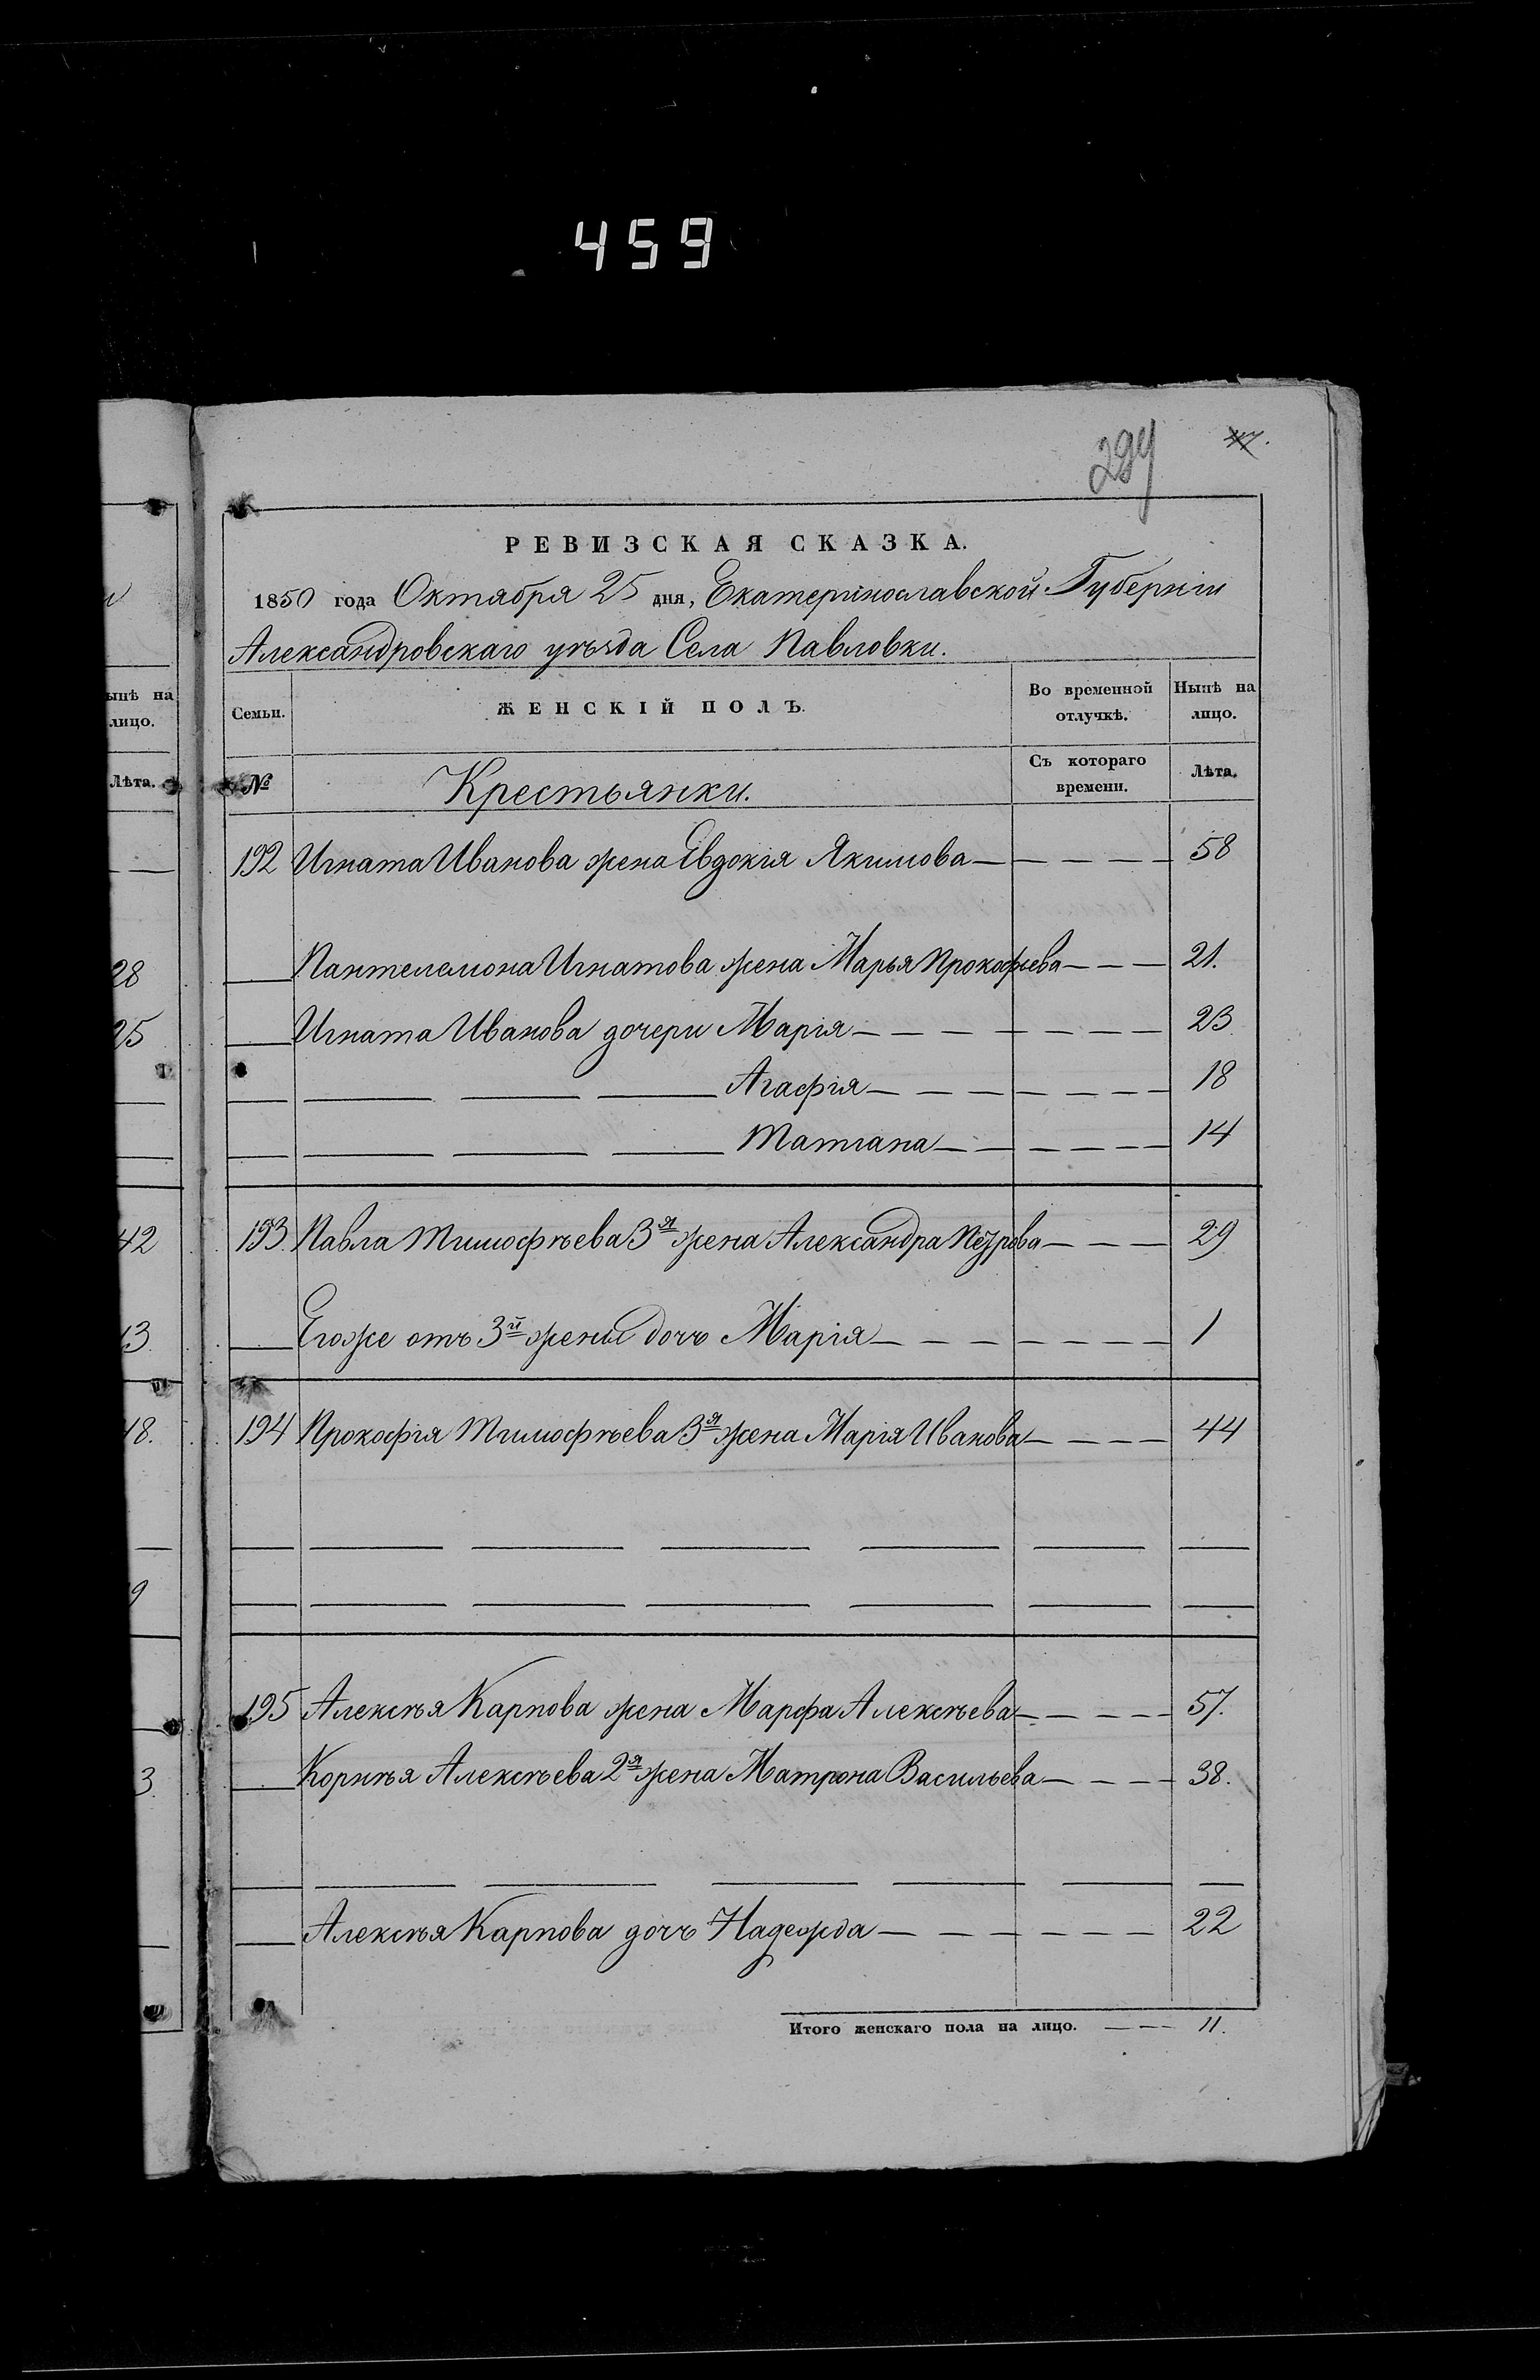 459
299
47.
РЕВИЗСКАЯ СКАЗКА.
1850 года Октября 25 дня, Екатеринославской Губернiи
Александровскаго уѣзда Села Павловки.
ынѣ на
лицо.
Лѣта.
Семьи.
ЖЕНСКIЙ ПОЛЪ.
Во временной
отлучкѣ.
Нынѣ на
лицо.
№
Крестьянки.
Съ котораго
времени.
Лѣта.
192 Игната Иванова жена Евдокiя Якимова — — — — — 58
28
Пантелемона Игнатова жена Марья Прокофьева — — — 21.
25
Игната Иванова дочери Марiя — — — — — — — 23
Агафiя — — — — — — — 18
Татiана — — — — — — 14
42
193. Павла Тимофѣева 3я жена Александра Петрова — — — 29
3
Егоже отъ 3й жены дочь Марiя — — — — — — 1
18.
194 Прокофiя Тимофѣева 3я жена Марiя Иванова — — — — 44
9
195 Алексѣя Карпова жена Марфа Алексѣева — — — — 57.
3.
Корнѣя Алексѣева 2я жена Матрона Васильева — — — — 38.
Алексѣя Карпова дочь Надежда — — — — — — 22
Итого женскаго пола на лицо. — — — 11.